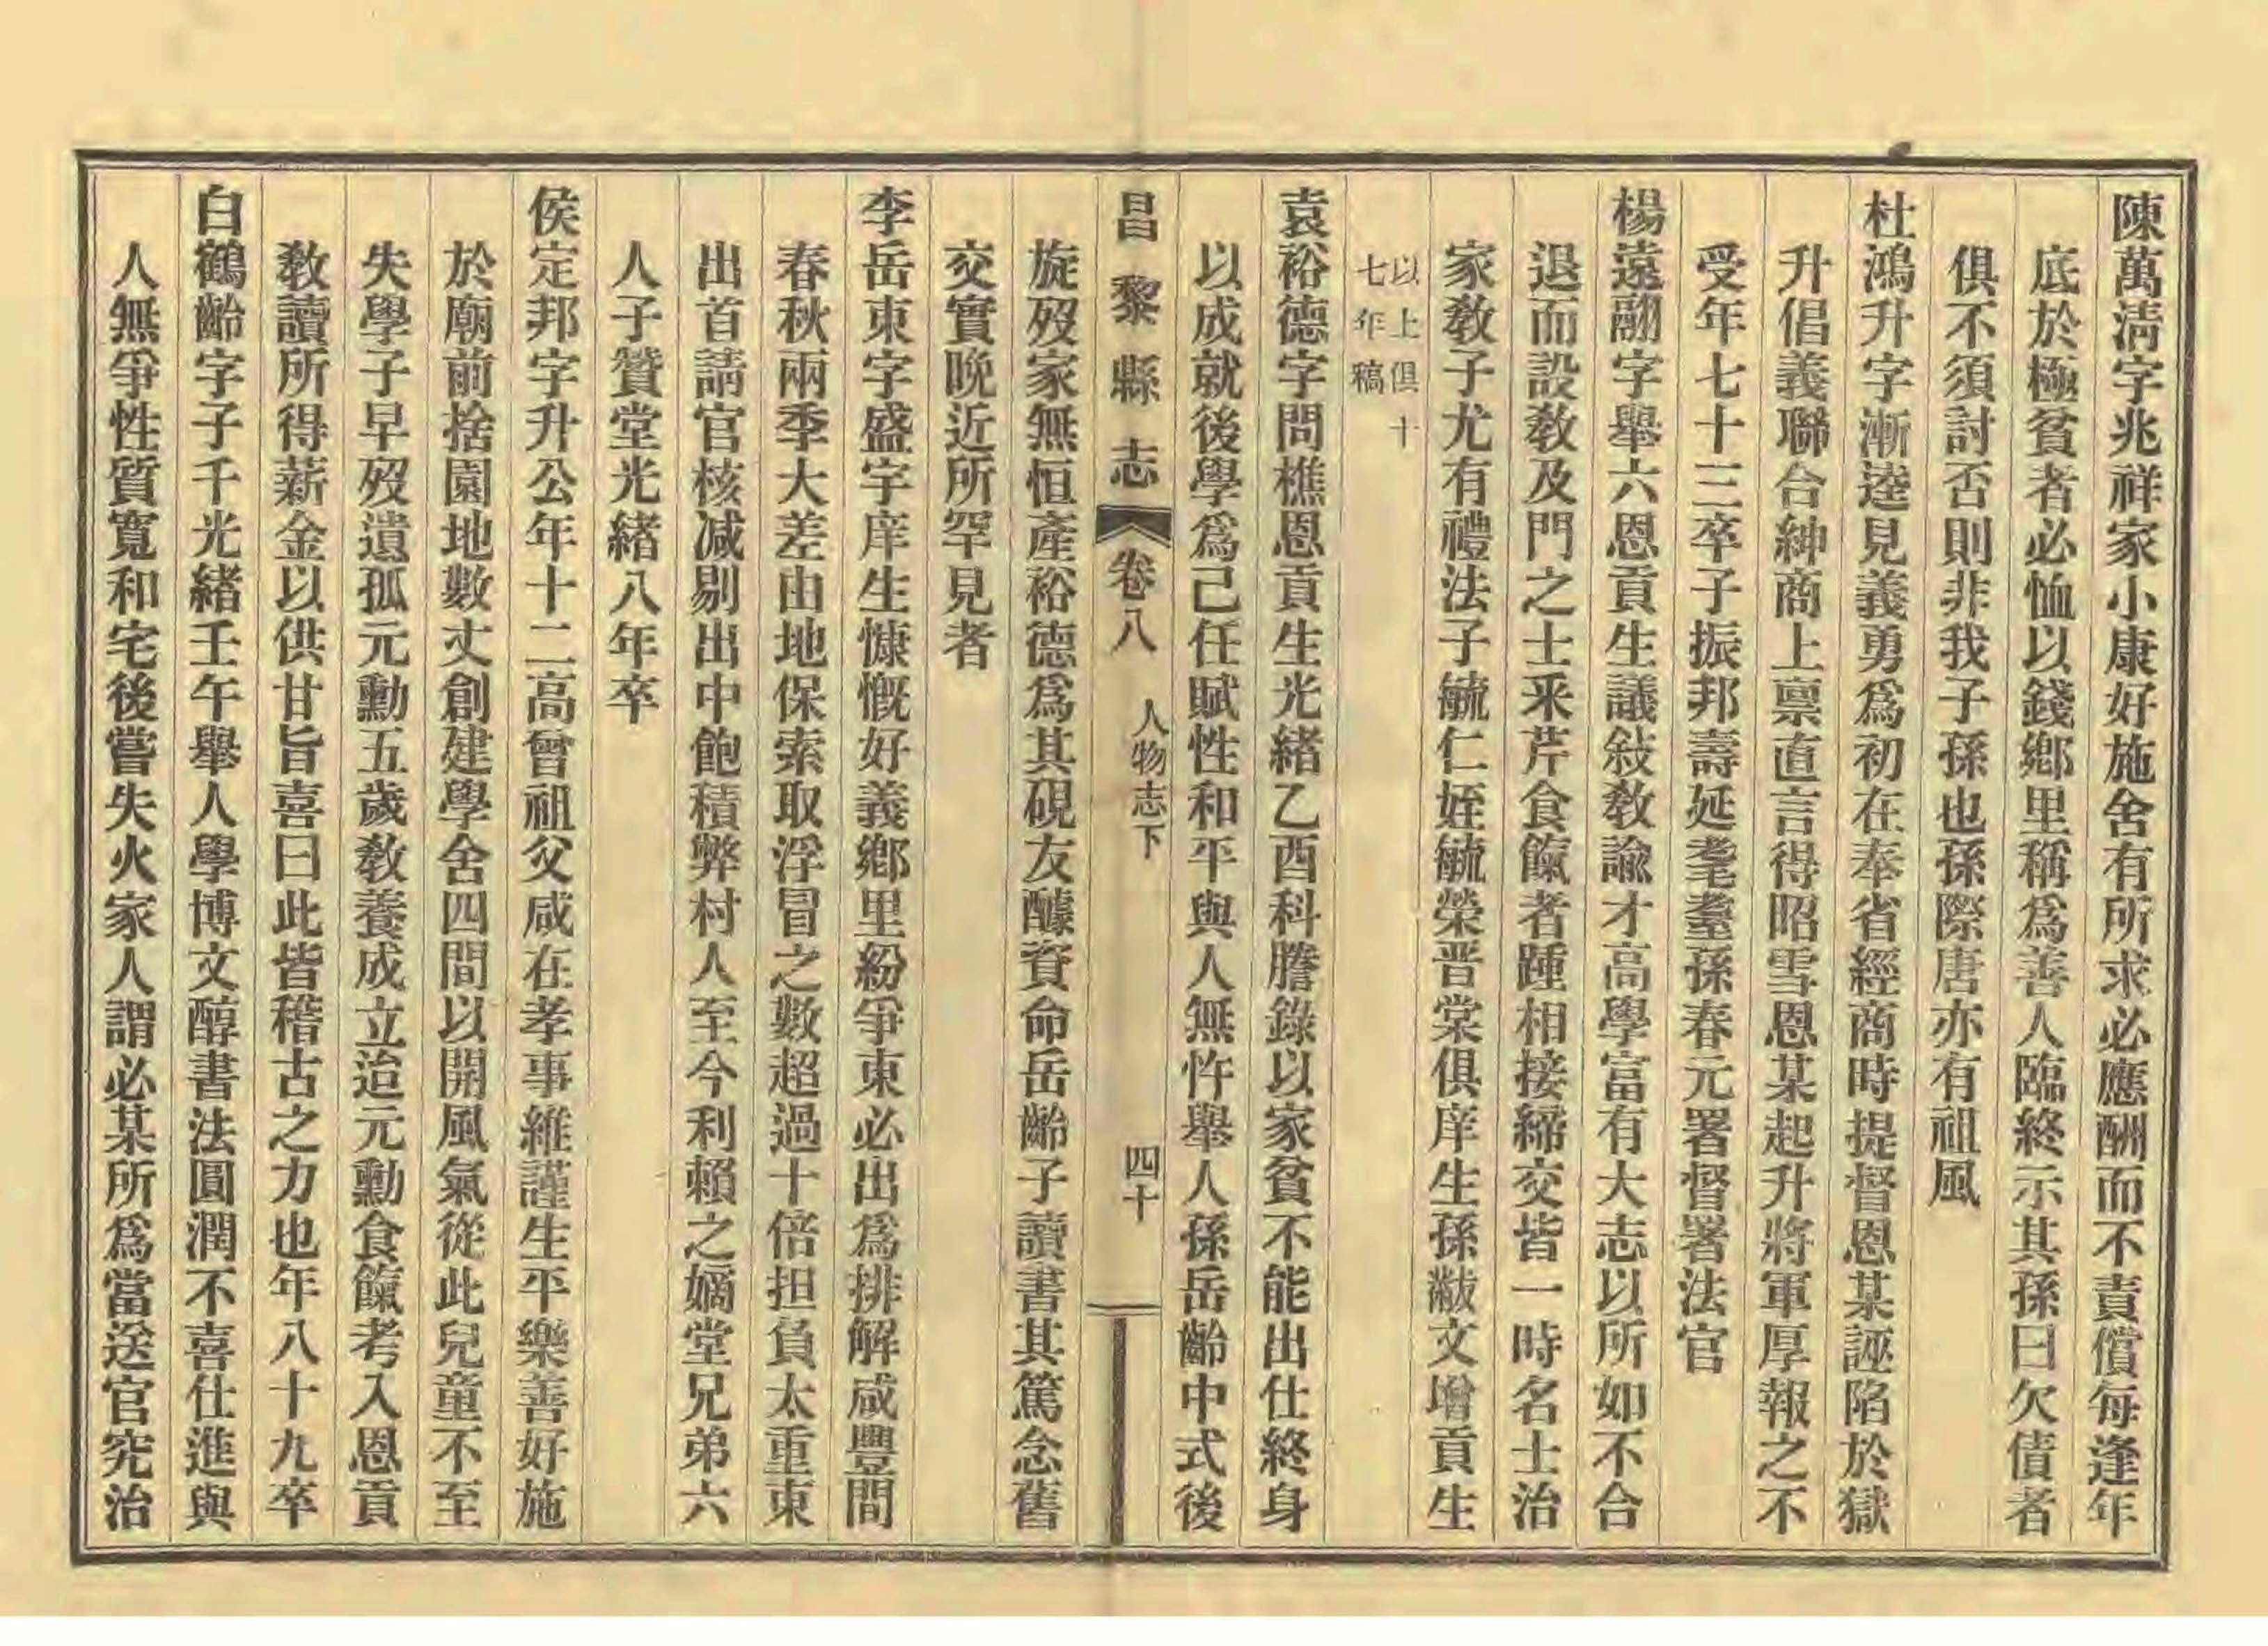 陳萬淸字兆祥家小康好施舍有所求必應酬而不責償每逢年
底於極貧者必恤以錢鄕里稱爲善人臨終示其孫曰欠債者
俱不須討否則非我子孫也孫際唐亦有祖風
杜鴻升字漸逵見義勇爲初在奉省經商時提督恩某誣陷於獄
升倡義聯合紳商上禀直言得昭雪恩某起升將軍厚報之不
受年七十三卒子振邦壽延耄耋孫春元署督署法官
楊遠翮字舉六恩貢生議敍敎諭才高學富有大志以所如不合
退而設敎及門之士釆芹食餼者踵相接締交皆一時名士治
家敎子尤有禮法子毓仁姪毓榮晋棠俱庠生孫黻文增貢生
以上俱十
七年稿
袁裕德字問樵恩貢生光緒乙酉科謄錄以家貧不能出仕終身
以成就後學爲己任賦性和平與人無忤舉人孫岳齡中式後
昌黎縣志 卷八 人物志下 四十
旋歿家無恒產裕德爲其硯友醵資命岳齡子讀書其篤念舊
交實晩近所罕見者
李岳東字盛宇庠生慷慨好義鄕里紛爭東必出爲排解咸豐間
春秋兩季大差由地保索取浮冒之數超過十倍担負太重東
出首請官核减剔出中飽積弊村人至今利賴之嫡堂兄弟六
人子贊堂光緒八年卒
侯定邦字升公年十二高曾祖父咸在孝事維謹生平樂善好施
於廟前捨園地數丈創建學舍四間以開風氣從此兒童不至
失學子早歿遺孤元勳五歲敎養成立迨元勳食餼考入恩貢
敎讀所得薪金以供甘旨喜曰此皆稽古之力也年八十九卒
白鶴齡字子千光緒壬午舉人學博文醇書法圓潤不喜仕進與
人無爭性質寬和宅後嘗失火家人謂必某所爲當送官究治